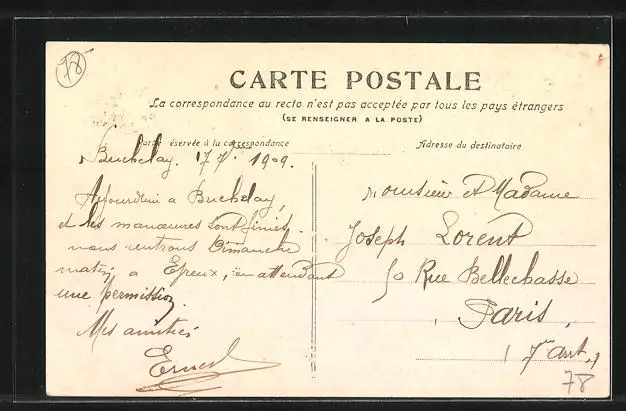 78
CARTE POSTALE
La correspondance au recto n'est pas acceptée par tous les pays étrangers
(SE RENSEIGNER A LA POSTE)
Partie réservée à la correspondance
Adresse du destinataire
Buchelay. 17 7 1909.
Aujourd'hui a Buchelay,
et les manœuvres sont finies.
nous rentrons Dimanche
matin, a Evreux, en attendant
une permission.
Mes amitiés
Ernest
Monsieur et Madame
Joseph Lorent
50 Rue Bellechasse
Paris,
7me arrt,
78